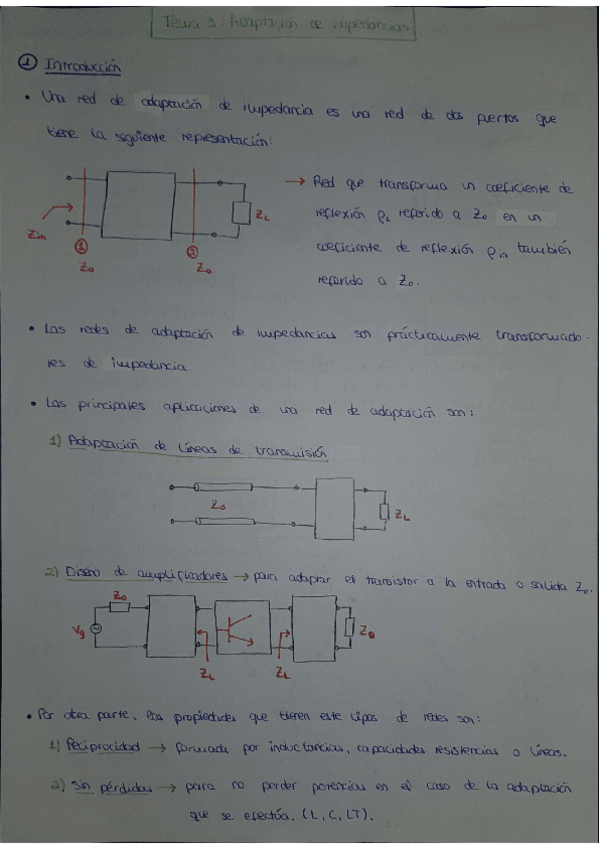 Tema 3: Adaptación de impedancias
1 Introducción
• Una red de adaptación de impedancia es una red de dos puertos que
tiene la siguiente representación:
Zin
1
Z0
2
Z0
ZL
→ Red que transforma un coeficiente de
reflexión ρL referido a Z0 en un
coeficiente de reflexión ρin también
referido a Z0.
• Las redes de adaptación de impedancias son prácticamente transformado-
res de impedancia.
• Las principales aplicaciones de una red de adaptación son:
1) Adaptación de líneas de transmisión
Z0
ZL
2) Diseño de amplificadores → para adaptar el transistor a la entrada o salida Z0.
Z0
Vg
ZL
ZL
Z0
• Por otra parte, las propiedades que tienen este tipos de redes son:
1) Reciprocidad → formada por inductancias, capacidades resistencias o líneas.
2) Sin pérdidas → para no perder potencias en el caso de la adaptación
que se efectúa, (L, C, LT).